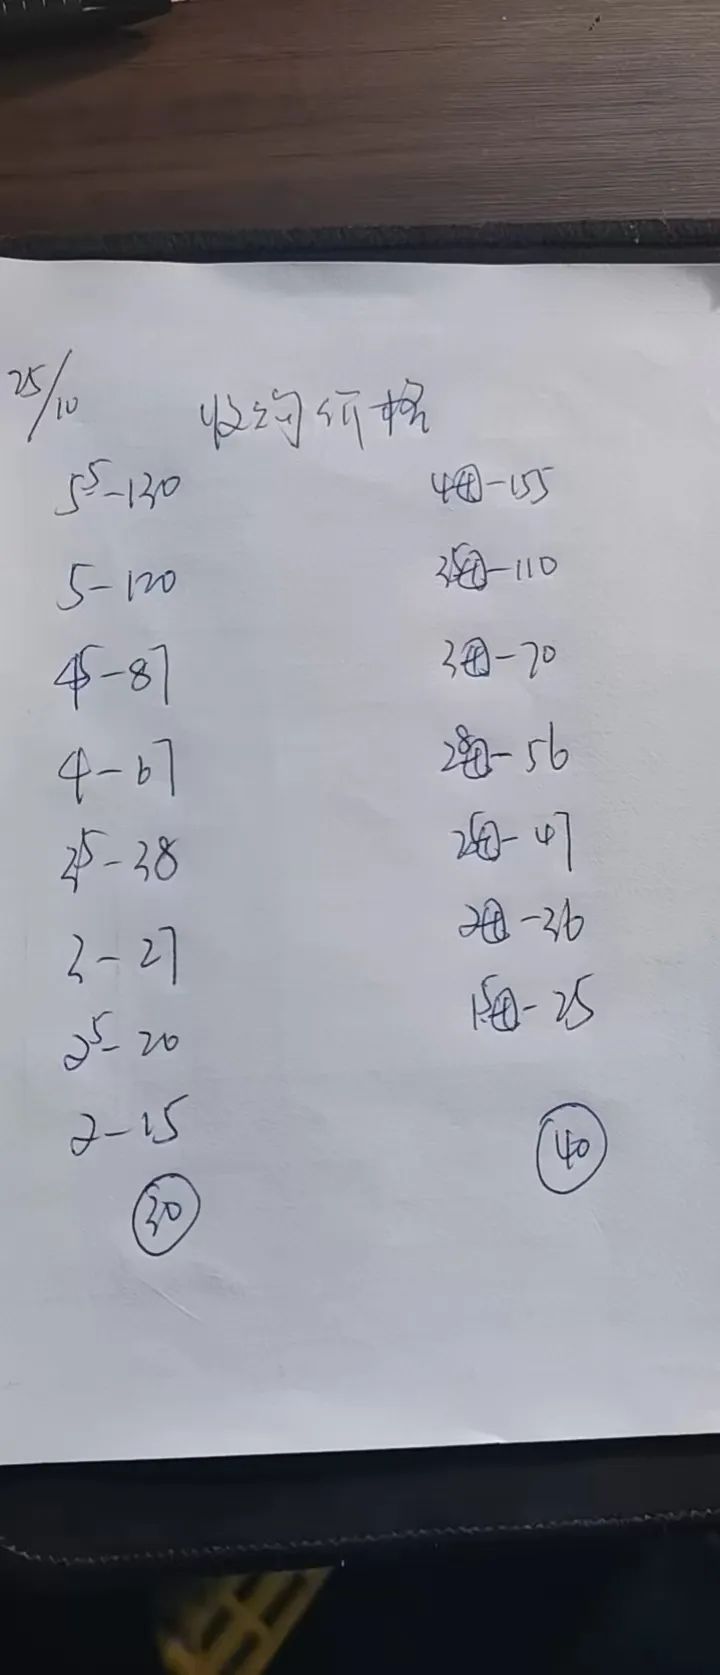 25/10
收购价格
5⁵-130
5-120
4⁵-87
4-67
3⁵-38
3-27
2⁵-20
2-15
30
4母-155
3⁵母-110
3母-70
2⁸母-56
2⁵母-47
2母-36
1⁵母-25
40